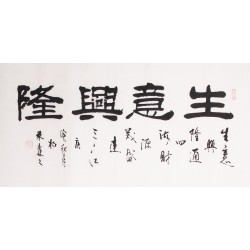 生意興隆
生意
興
隆通
四
海財
源
茂盛
達
三江
庚